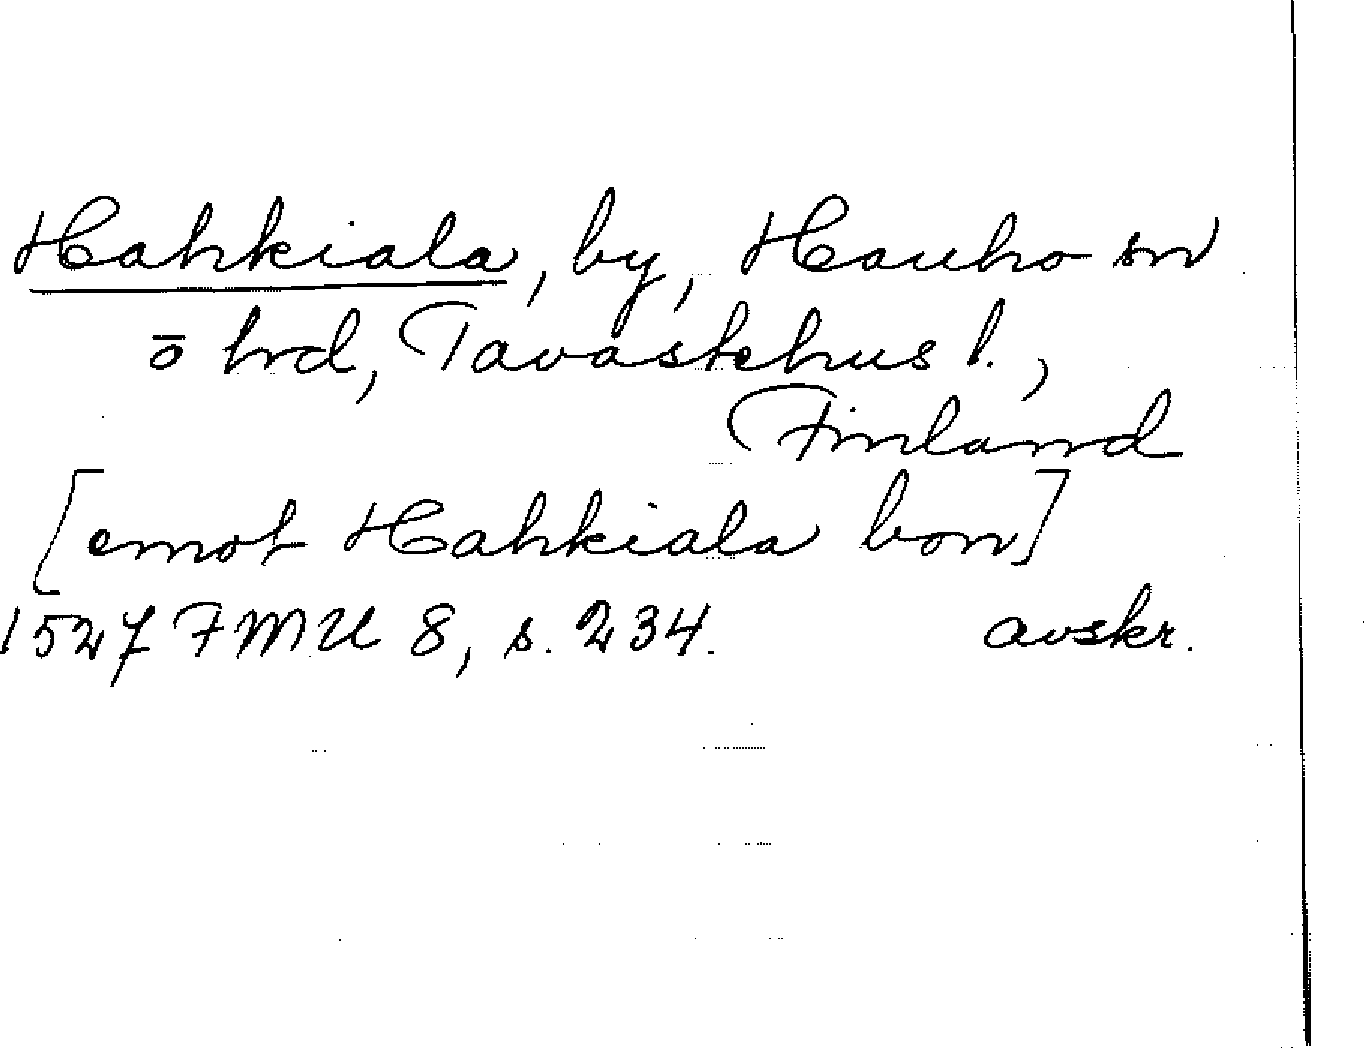 Hahkiala, by, Hauho sn
ō hrd, Tavastehus l.,
Finland
[emot Hahkiala bon]
1527 FMU 8, s. 234. avskr.